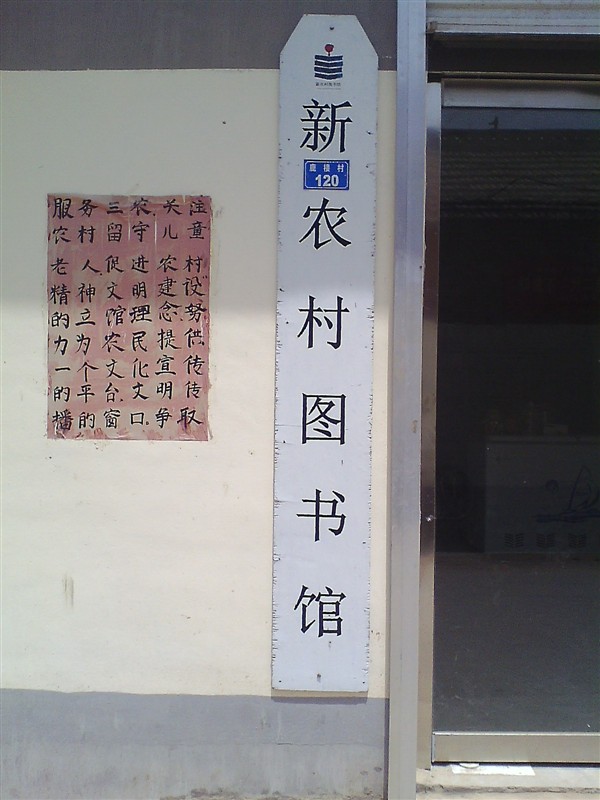 服务三农关注
农村留守儿童
老人促进农村
精神文明建设
的立馆理念努
力为农民提供
一个文化宣传
的平台文明传
播的窗口争取
新农村图书馆
鹿楼村
120